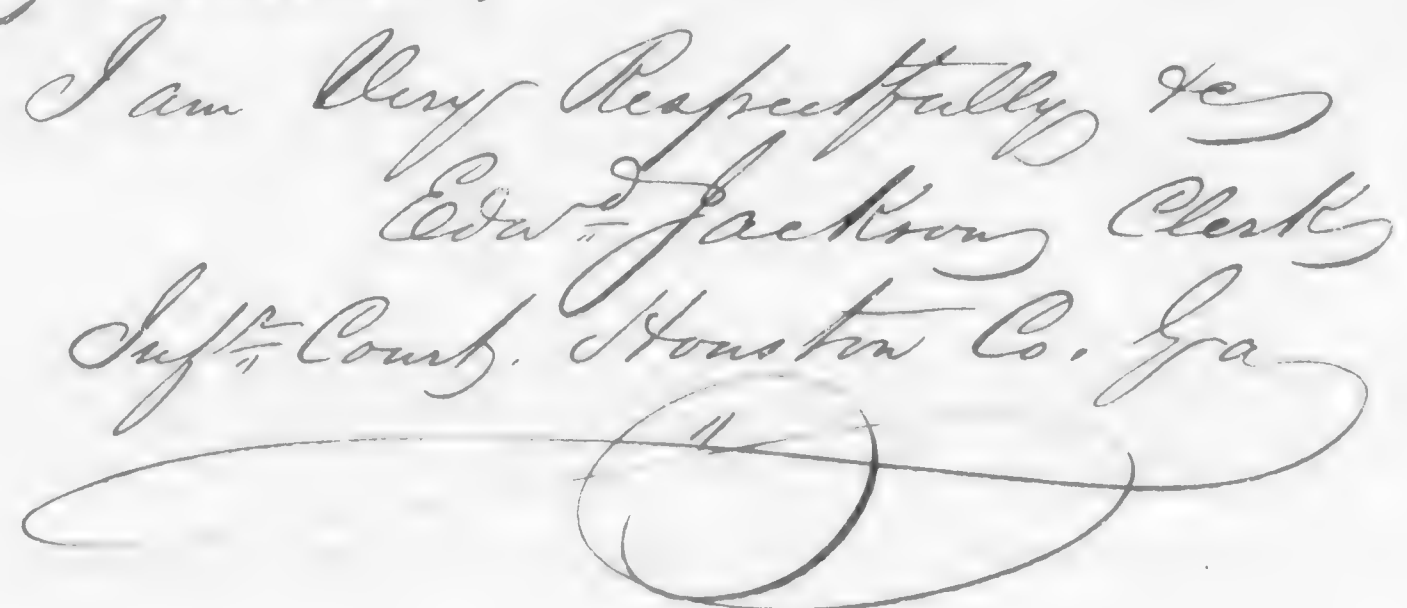 I am Very Respectfully &c
Edwd Jackson Clerk
Infr Court. Houston Co. Ga